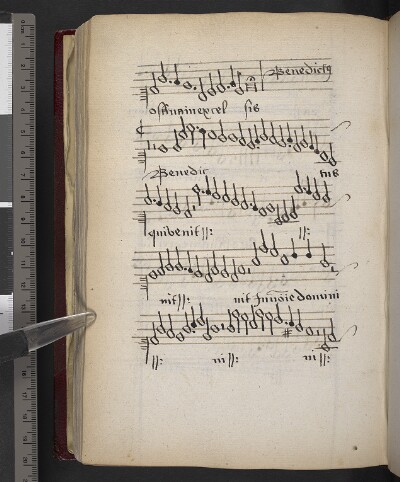 Benedictꝯ
osannainexcel sis
Benedic tus
quibenit ||: ||:
nit ||: nit Innoīe domini
||: ni ||: ni ||: